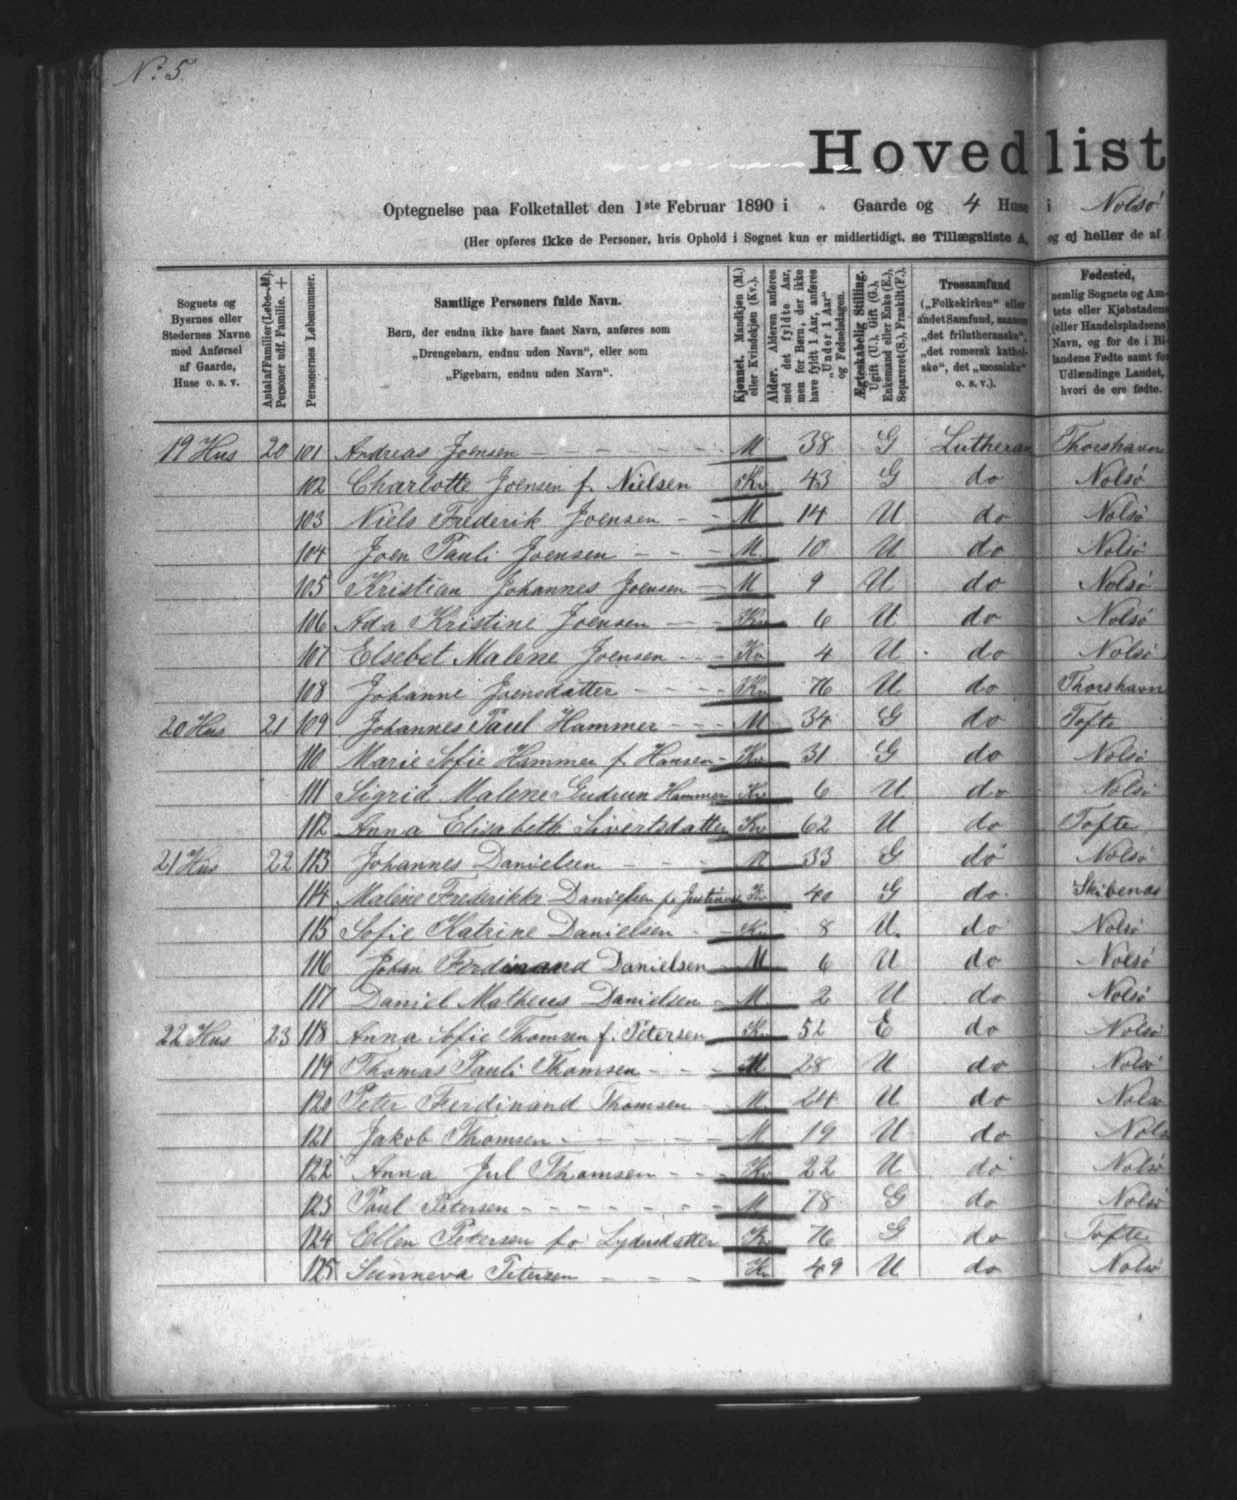 No: 5.
Hovedlist
Optegnelse paa Folketallet den 1ste Februar 1890 i „ Gaarde og 4 Huse i Nolsö
(Her opføres ikke de Personer, hvis Ophold i Sognet kun er midlertidigt, se Tillægsliste A, og ej heller de af
Sognets og Byernes eller Stedernes Navne med Anførsel af Gaarde, Huse o. s. v.
Antal af Familier (Løbe-№). Personer udf. Familie. +
Personernes Løbenummer.
Samtlige Personers fulde Navn.
Børn, der endnu ikke have faaet Navn, anføres som
„Drengebarn, endnu uden Navn“, eller som
„Pigebarn, endnu uden Navn“.
Kjønnet. Mandkjøn (M.) eller Kvindekjøn (Kv.).
Alder. Alderen anføres med det fyldte Aar, men for Børn, der ikke have fyldt 1 Aar, anføres „Under 1 Aar“ og Fødselsdagen.
Ægteskabelig Stilling. Ugift (U.), Gift (G.), Enkemand eller Enke (E.), Separeret (S.), Fraskilt (F.).
Trossamfund
(„Folkekirken“ eller andet Samfund, saasom „det frilutheranske“, „det romersk katholske“, det „mosaiske“ o. s. v.).
Fødested,
nemlig Sognets og Amtets eller Kjøbstadens (eller Handelspladsens) Navn, og for de i Bilandene Fødte samt for Udlændinge Landet, hvori de ere fødte.
19 Hus 20 101 Andreas Joensen M 38 G Lutheran Thorshavn
102 Charlotte Joensen f. Nielsen Kv 43 G do Nolsö
103 Niels Frederik Joensen M 14 U do Nolsö
104 Joen Pauli Joensen M. 10 U do Nolsö
105 Kristian Johannes Joensen M 9 U do Nolsö
106 Ada Kristine Joensen Kv 6 U do Nolsö
107 Elsebet Malene Joensen Kv 4 U do Nolsö
108 Johanne Joensdatter Kv 76 U do Thorshavn
20 Hus 21 109 Johannes Paul Hammer M 34 G do Tofte
110 Marie Sofie Hammer f. Hansen Kv 31 G do Nolsö
111 Sigrid Malene Gudrun Hammer Kv 6 U do Nolsö
112 Anna Elisabeth Sivertsdatter Kv 62 U do Tofte
21 Hus 22 113 Johannes Danielsen M 33 G do Nolsö
114 Malene Frederikke Danielsen f. Kv 40 G do Skibenæs
115 Sofie Katrine Danielsen Kv 8 U. do Nolsö
116 Johan Ferdinand Danielsen M 6 U do Nolsö
117 Daniel Matheus Danielsen M 2 U do Nolsö
22 Hus 23 118 Anna Sofie Thomsen f. Petersen Kv 52 E do Nolsö
119 Thomas Pauli Thomsen M 28 U do Nolsö
120 Peter Ferdinand Thomsen M 24 U do Nolsö
121 Jakob Thomsen M 19 U do Nolsö
122 Anna Jul Thomsen Kv 22 U do Nolsö
123 Paul Petersen M 78 G do Nolsö
124 Ellen Petersen fo Kv 76 G do Tofte
125 Sunneva Petersen Kv 49 U do Nolsö